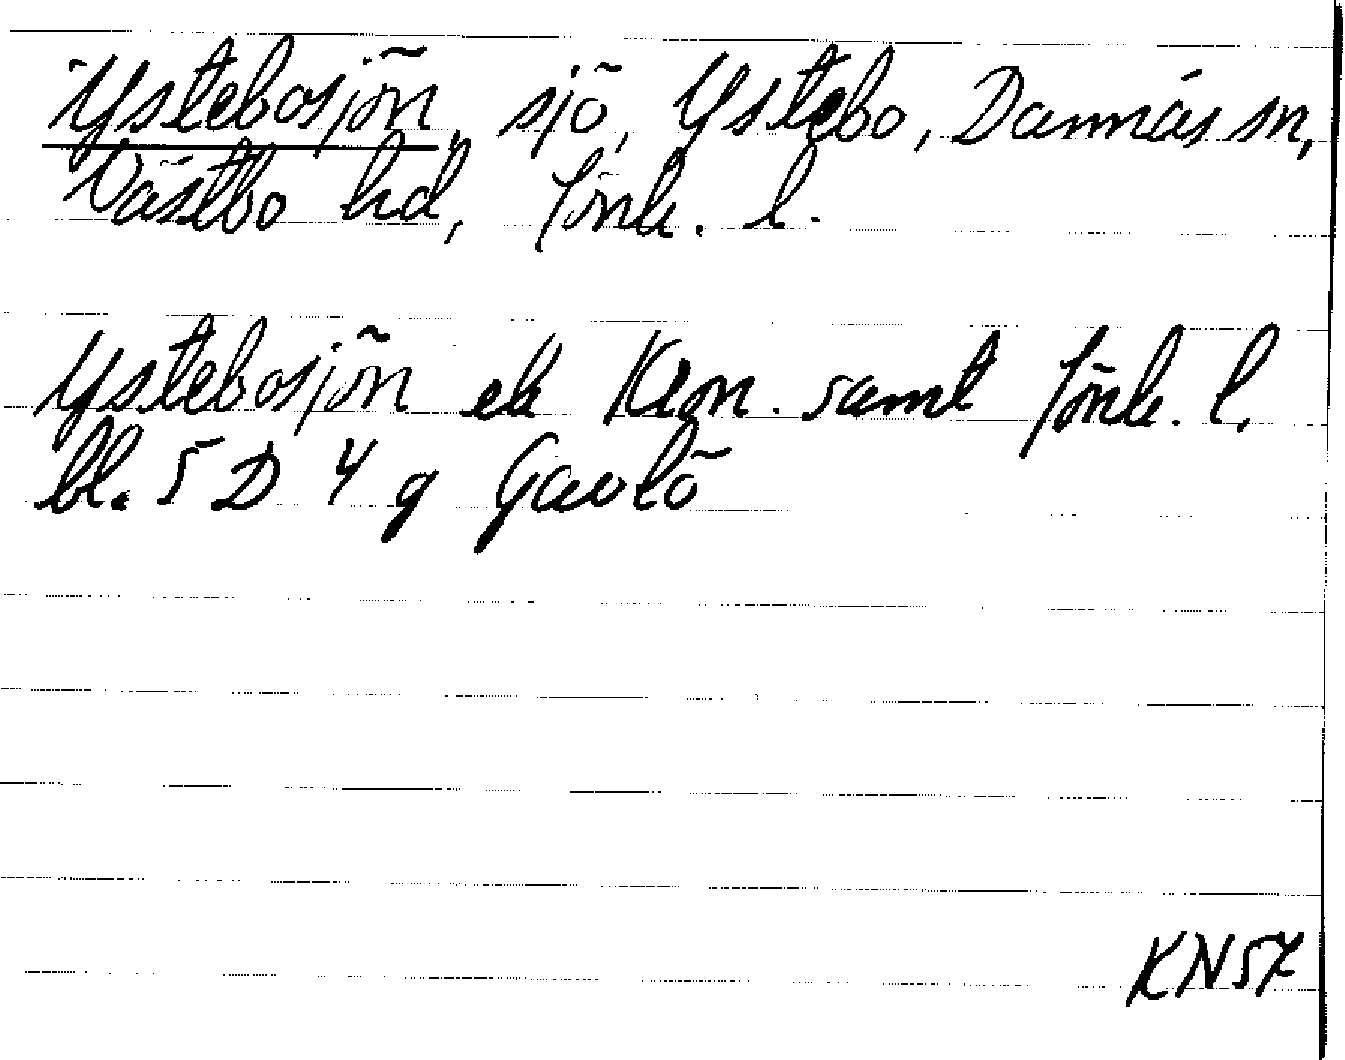 Ystebosjön, sjö, Ystebo, Dannäs sn,
Västbo hd, Jönk. l.
Ystebosjön ek Kron. samt Jönk. l.
bl. 5 D 4 g Gavlö
KN57